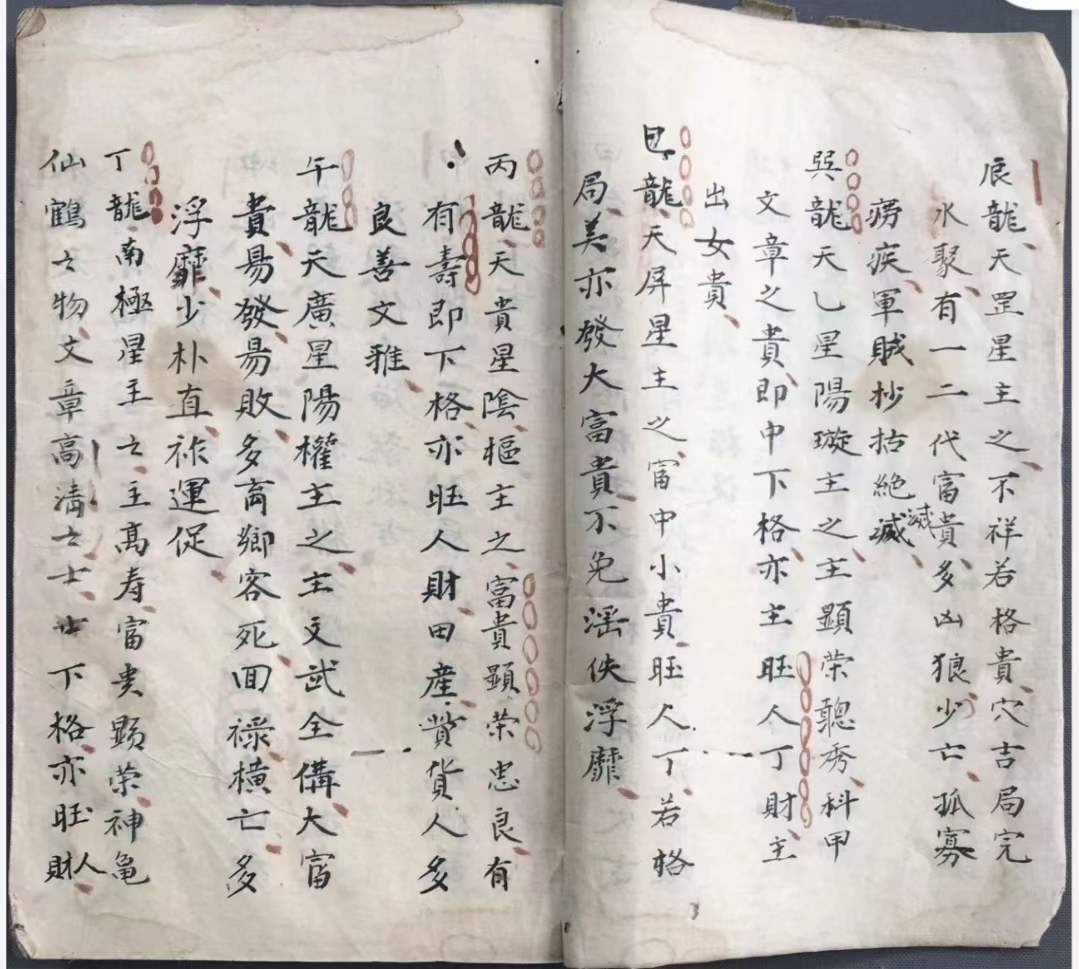 辰龍天罡星主之不祥若格貴穴吉局完
水聚有一二代富貴多凶狼少亡孤寡
痨疾軍賊抄括絕滅滅
巽龍天乙星陽璇主之主顯荣聰秀科甲
文章之貴即中下格亦主旺人丁財主
出女貴
巳龍天屏星主之富中小貴旺人丁若格
局美亦發大富貴不免滛佚浮靡
丙龍天貴星陰樞主之富貴顯荣忠良有
有壽即下格亦旺人財田産貲货人多
良善文雅
午龍天廣星陽權主之主文武全備大富
貴易發易敗多商鄉客死回禄横亡多
浮靡少朴直祚運促
丁龍南極星主之主高寿富貴顕荣神亀
仙鶴之物文章高淸之士下格亦旺人財